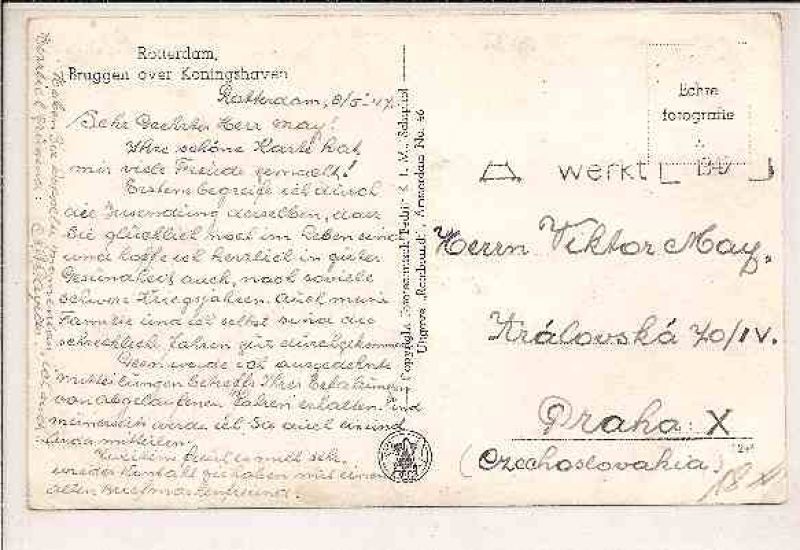 Rotterdam,
Bruggen over Koningshaven
Rotterdam, 8/5-47.
Sehr Geehrter Herr May!
Ihre schöne Karte hat
mir viele Freude gemacht!
Erstens begreife ich durch
die Zusendung derselben, dass
Sie glücklich noch im Leben sind
und hoffe ich herzlich in guter
Gesundheit auch, nach soviele
schwere Kriegsjahren. Auch meine
Familie und ich selbst sind die
schrecklich Jahren gut durchgekommen
Gern werde ich ausgedehnte
Mitteilungen betreffs Ihrer Erfahrungen
von abgelaufenen Jahren erhalten. Und
meinerseits werde ich Sie auch ein und
mitteilen.
Zweitens freut es mich sehr
wieder Kontakt zu haben mit einem
alten Briefmarkenfreund.
Copyright Fotogrammisch Techn.
Uitgave „Rembrandt", Amsterdam No. 46
Echte
fotografie
werkt
Herrn Viktor May.
Královská 70/IV.
Praha: X
(Czechoslovakia)